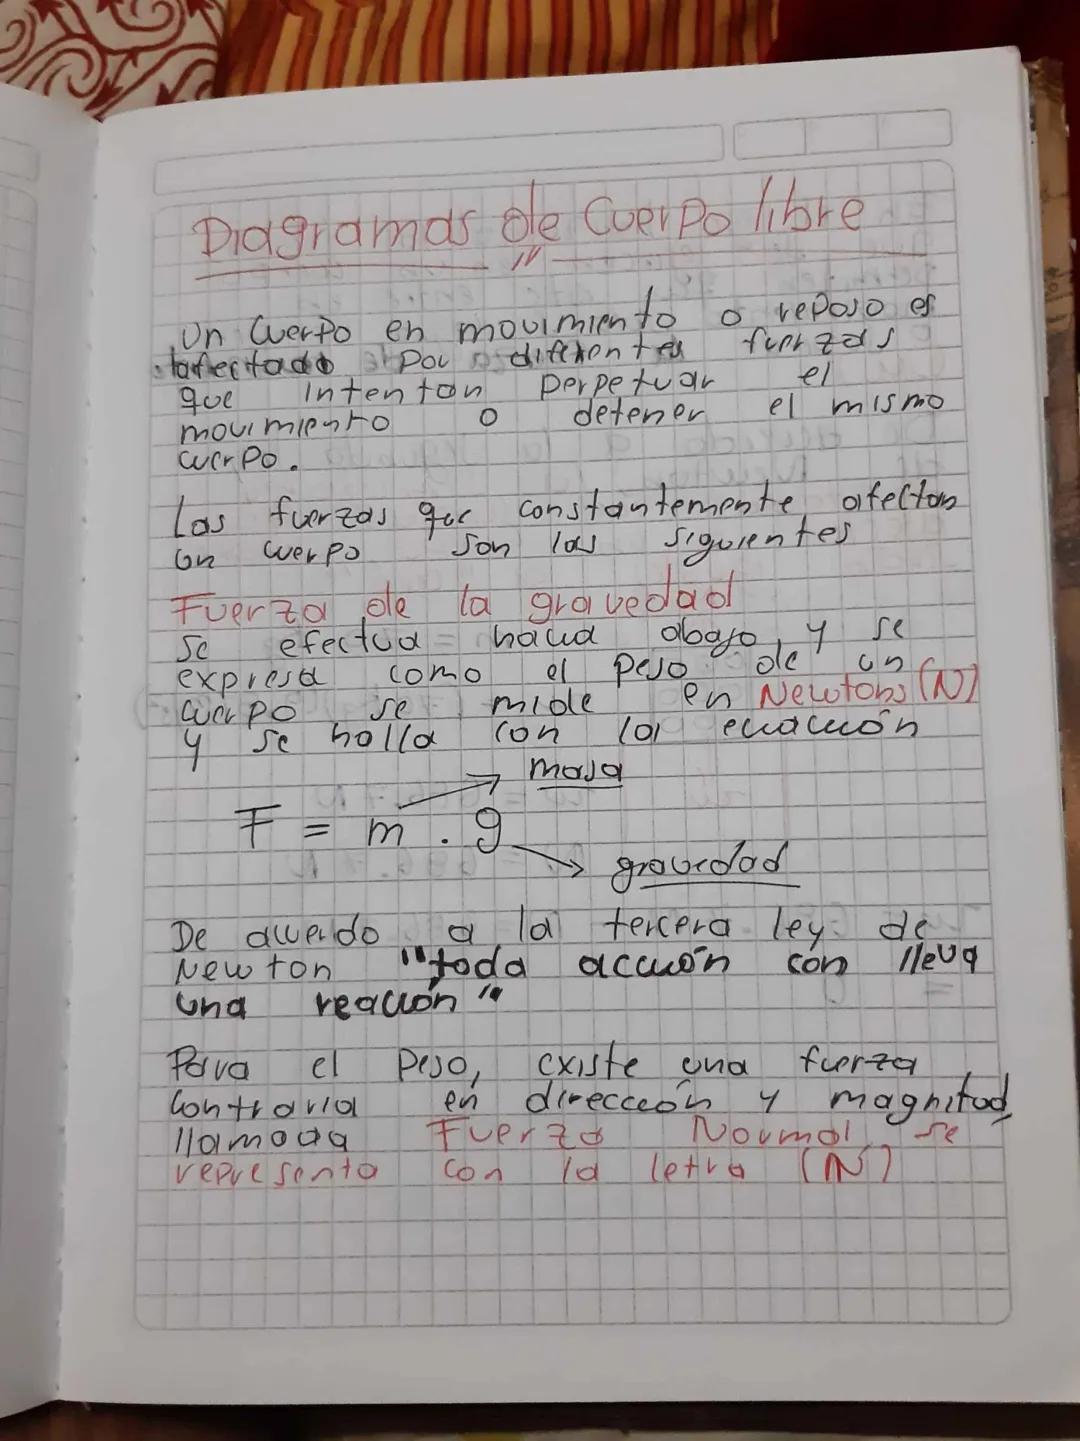 Diagramas de Cuerpo libre
Un Cuerpo en movimiento o reposo es
afectado por diferentes fuerzas
que intentan perpetuar el
movimiento o detener el mismo
cuerpo.
Las fuerzas que constantemente afectan
un cuerpo son las siguientes
Fuerza de la gravedad
Se efectua hacia abajo, y se
expresa como el peso de un
cuerpo se mide en Newtons (N)
y se halla con la ecuación
masa
F = m . g
gravedad
De acuerdo a la tercera ley de
Newton "toda acción con lleva
una reacción"
Para el peso, existe una fuerza
contraria en dirección y magnitud
llamada Fuerza Normal se
representa con la letra (N)